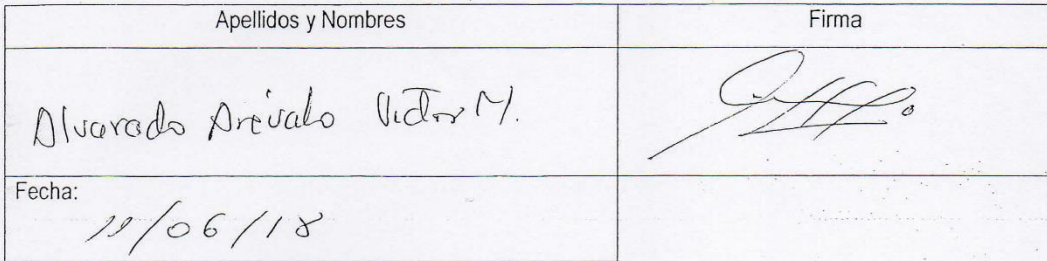 Apellidos y Nombres
Firma
Alvarado Arévalo Victor M.
Fecha:
/06/18